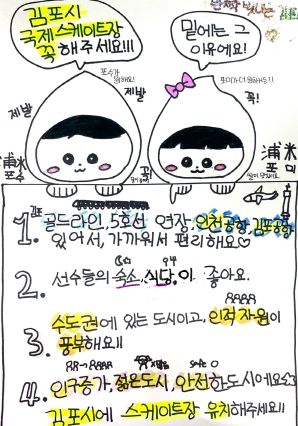 김포시
국제스케이트장
꼭 해주세요!!!
밑에는 그
이유예요!
포수가 원해요!!
제발
제발
꼭!
浦米
포수
꼭!
浦米
포미
1. 김포 골드라인, 5호선 연장, 인천공항, 김포공항
있어서, 가까워서 편리해요♡
2. 선수들의 숙소, 식당,이 좋아요.
수도권에 있는 도시이고, 인적 자원이
3. 풍부해요!!
4. 인구증가, 젊은도시, 안전한도시에요
김포시에 스케이트장 유치해주세요!!